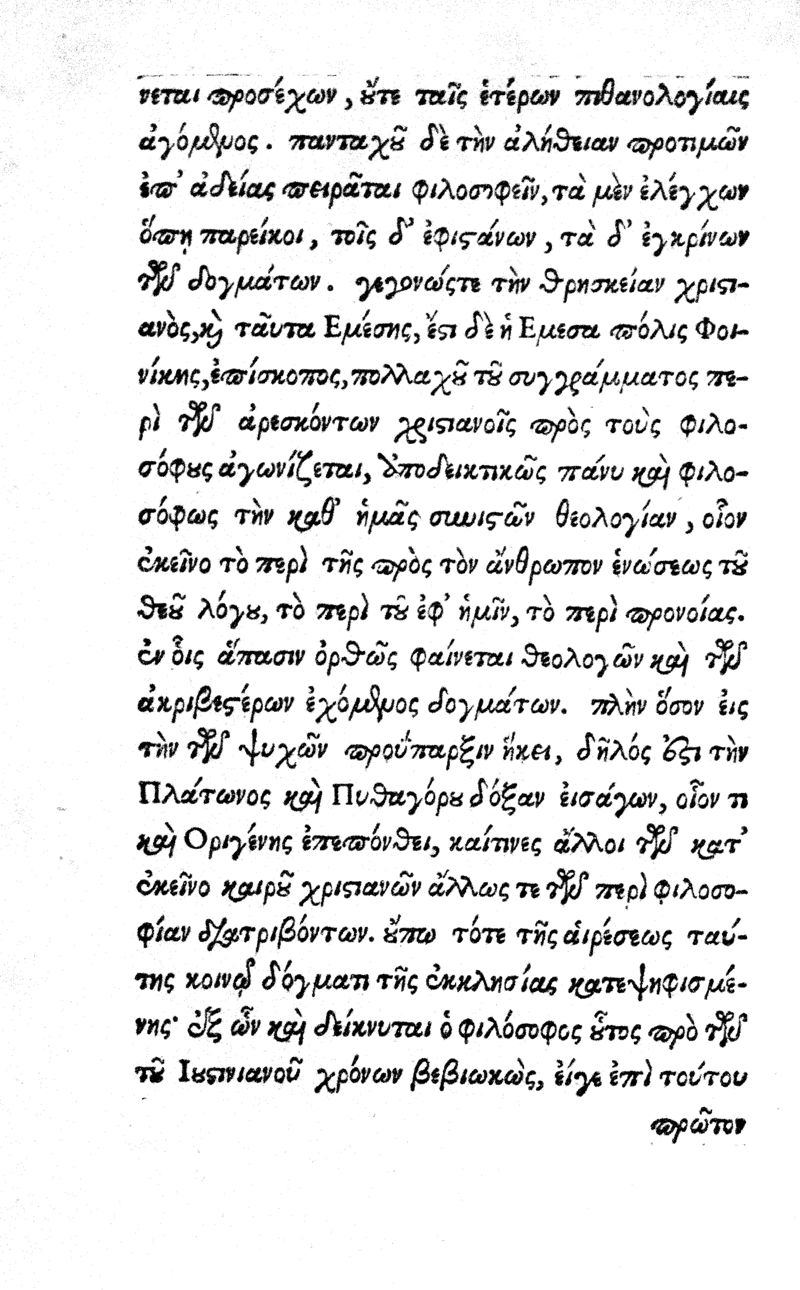 νεται προσέχων, ὔτε ταῖς ἑτέρων πιθανολογίαις
ἀγόμενος. πανταχοῦ δὲ τὴν ἀλήθειαν προτιμῶν
ἐπ' ἀδείας πειρᾶται φιλοσοφεῖν, τὰ μὲν ἐλέγχων
ὅπη παρείκοι, τοῖς δ' ἐφιϛάνων, τὰ δ' ἐγκρίνων
τῶν δογμάτων. γεγονώςτε τὴν θρησκείαν χριϛι-
ανὸς, καὶ ταῦτα Εμέσης, ἔϛι δὲ ἡ Εμεσα πόλις Φοι-
νίκης, ἐπίσκοπος, πολλαχοῦ τοῦ συγγράμματος πε-
ρὶ τῶν ἀρεσκόντων χριϛιανοῖς πρὸς τοὺς φιλο-
σόφους ἀγωνίζεται, ὑποδεικτικῶς πάνυ καὶ φιλο-
σόφως τὴν καθ' ἡμᾶς συνιϛῶν θεολογίαν, οἷον
ἐκεῖνο τὸ περὶ τῆς πρὸς τὸν ἄνθρωπον ἑνώσεως τοῦ
θεοῦ λόγου, τὸ περὶ τοῦ ἐφ' ἡμῖν, τὸ περὶ προνοίας.
ἐν οἷς ἅπασιν ὀρθῶς φαίνεται θεολογῶν καὶ τῶν
ἀκριβεϛέρων ἐχόμενος δογμάτων. πλὴν ὅσον εἰς
τὴν τῶν ψυχῶν προΰπαρξιν ἥκει, δῆλός ἐϛι τὴν
Πλάτωνος καὶ Πυθαγόρου δόξαν εἰσάγων, οἷον τι
καὶ Οριγένης ἐπεπόνθει, καίτινες ἄλλοι τῶν κατ'
ἐκεῖνο καιροῦ χριϛιανῶν ἄλλως τε τῶν περὶ φιλοσο-
φίαν διατριβόντων. οὔπω τότε τῆς αἱρέσεως ταύ-
της κοινῷ δόγματι τῆς ἐκκλησίας κατεψηφισμέ-
νης· ἐξ ὧν καὶ δείκνυται ὁ φιλόσοφος οὗτος πρὸ τῶν
τοῦ Ιουϛινιανοῦ χρόνων βεβιωκὼς, εἴγε ἐπὶ τούτου
πρῶτον